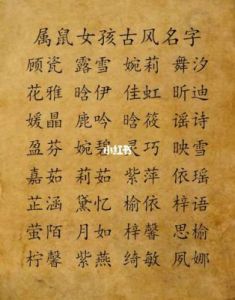 属鼠女孩古风名字
顾瓷 露雪 婉莉 舞汐
花雅 晗伊 佳虹 昕迪
媛晶 鹿吟 晗筱 谣诗
盈芬 婉碧 灵巧 映雪
小红书
嘉茹 莉茹 紫萍 依瑶
芷涵 黛忆 榆格 梓语
萤陌 月如 梓馨 思榆
柠馨 紫燕 绮敏 夙娜